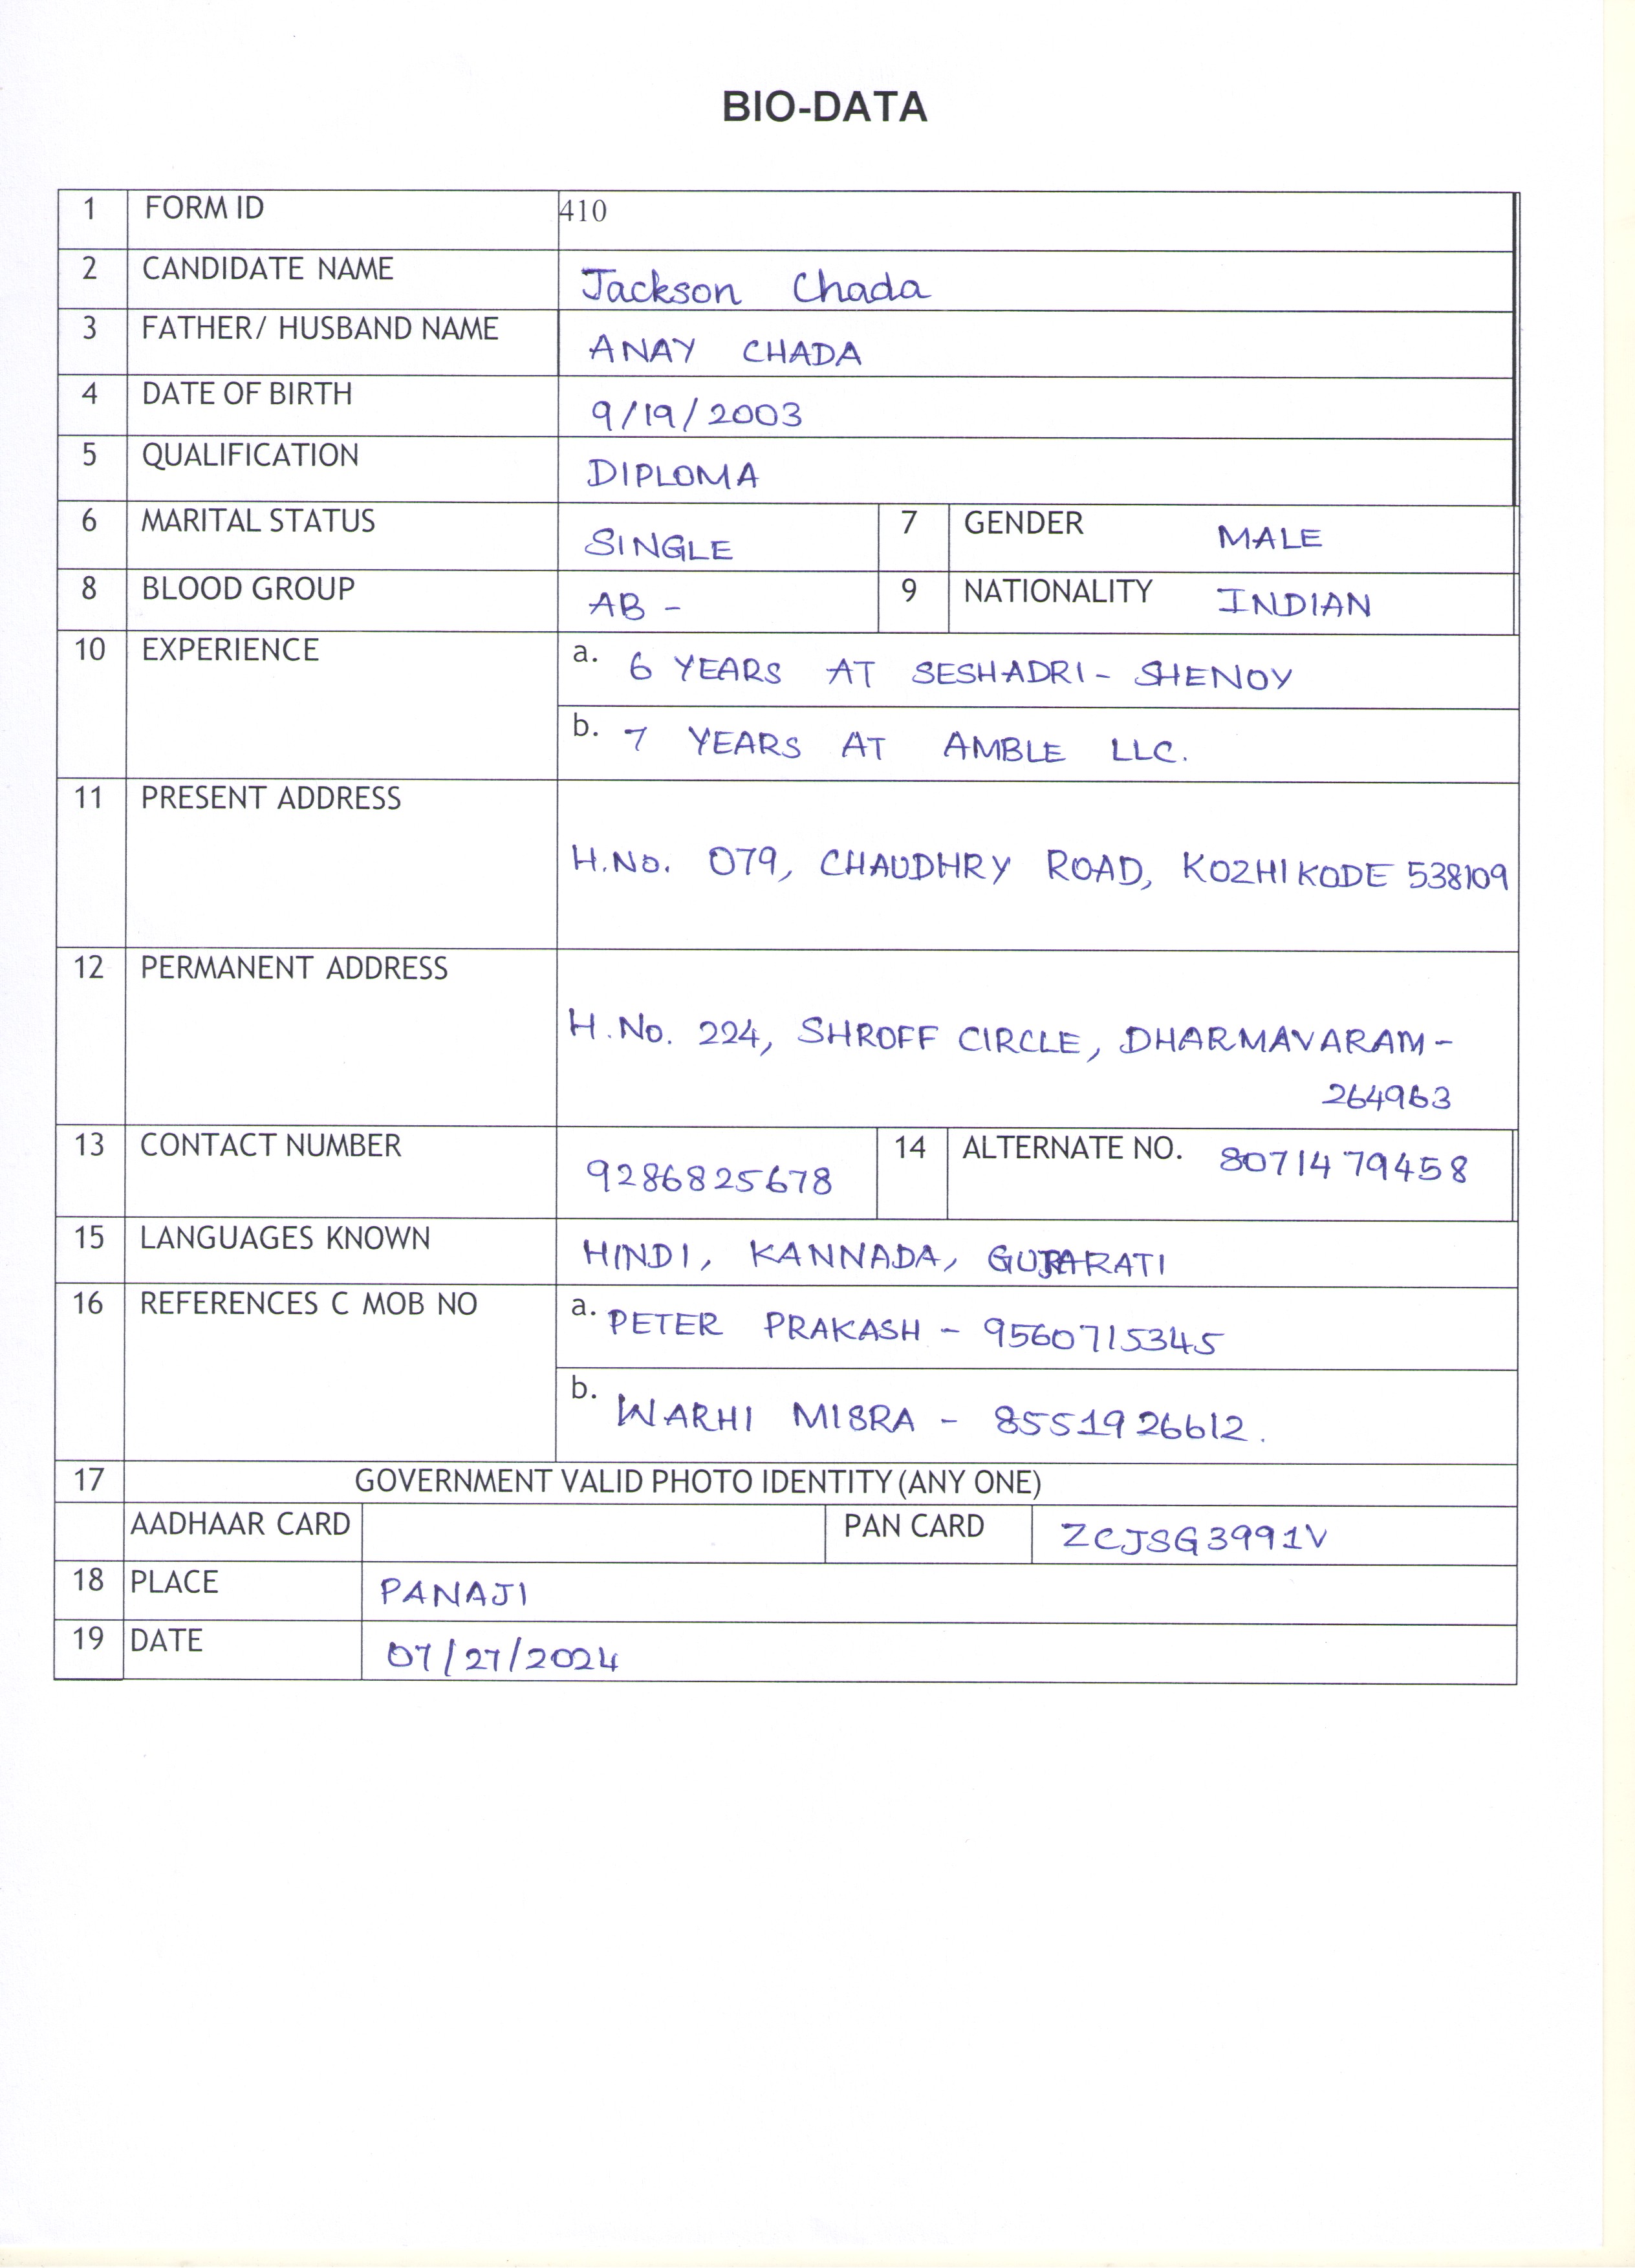 BIO-DATA
1 FORM ID 410
2 CANDIDATE NAME Jackson Chada
3 FATHER/ HUSBAND NAME ANAY CHADA
4 DATE OF BIRTH 9/19/2003
5 QUALIFICATION DIPLOMA
6 MARITAL STATUS SINGLE 7 GENDER MALE
8 BLOOD GROUP AB - 9 NATIONALITY INDIAN
10 EXPERIENCE a. 6 YEARS AT SESHADRI - SHENOY
b. 7 YEARS AT AMBLE LLC.
11 PRESENT ADDRESS
H.No. 079, CHAUDHRY ROAD, KOZHIKODE 538109
12 PERMANENT ADDRESS
H.No. 224, SHROFF CIRCLE, DHARMAVARAM -
264963
13 CONTACT NUMBER 9286825678 14 ALTERNATE NO. 8071479458
15 LANGUAGES KNOWN HINDI, KANNADA, GUJARATI
16 REFERENCES C MOB NO a. PETER PRAKASH - 9560715345
b. WARHI MISRA - 8551926612.
17 GOVERNMENT VALID PHOTO IDENTITY (ANY ONE)
AADHAAR CARD PAN CARD ZCJSG3991V
18 PLACE PANAJI
19 DATE 07/27/2024